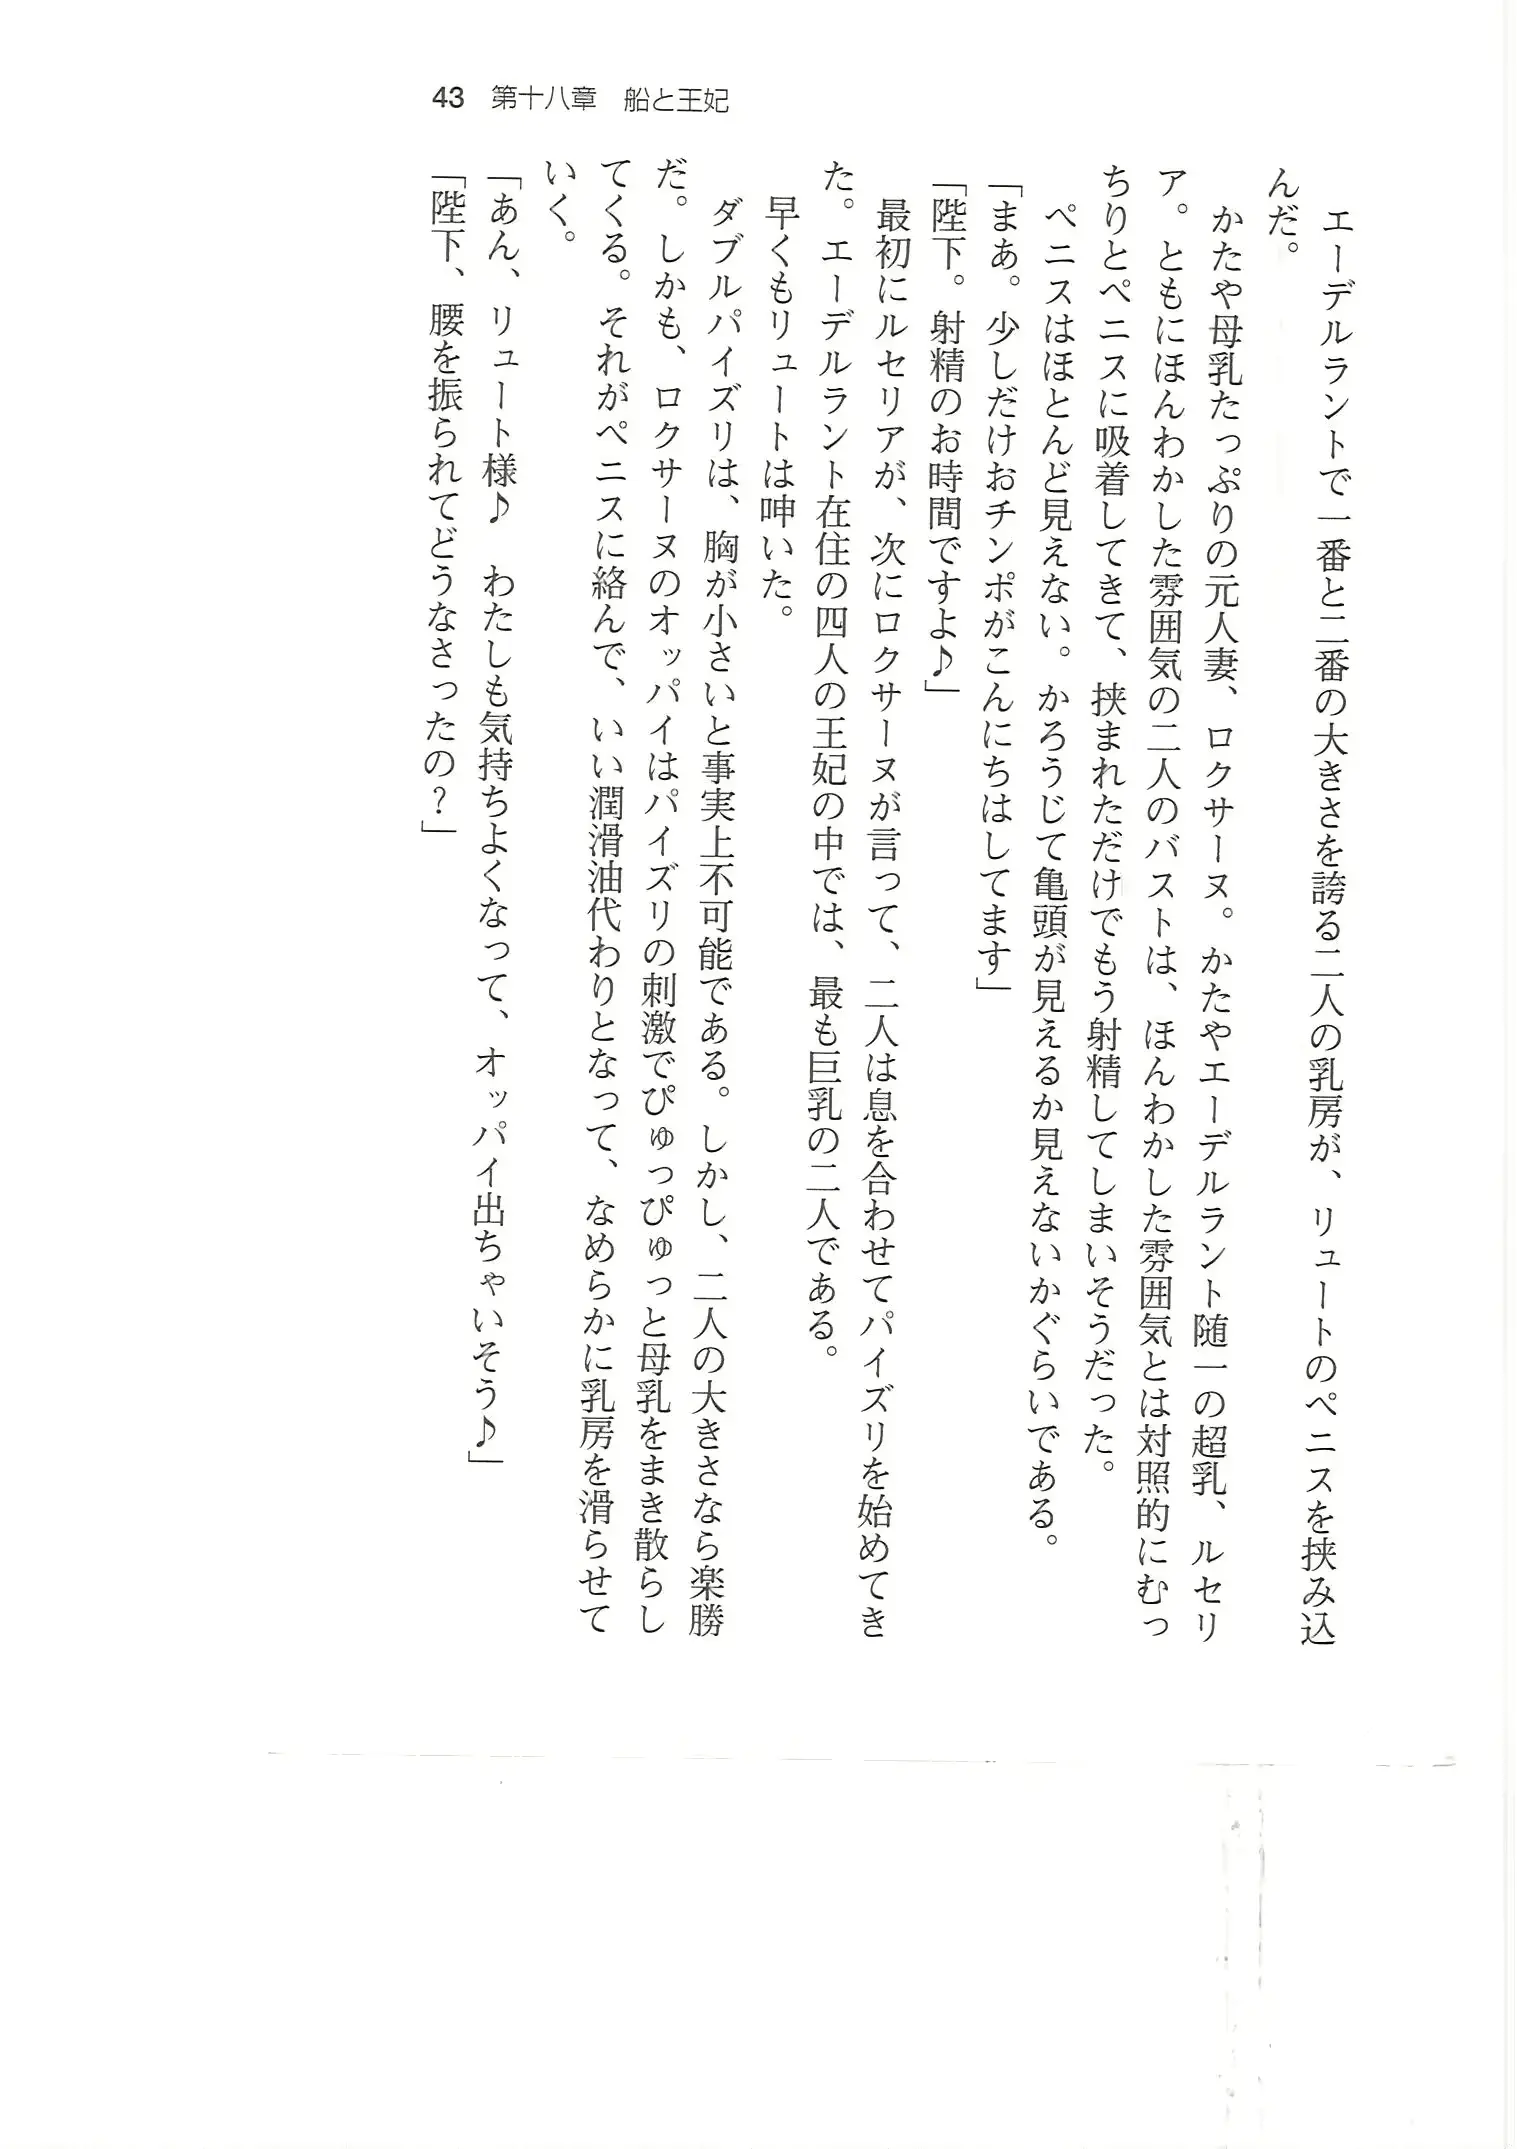 43　第十八章　船と王妃
　エーデルラントで一番と二番の大きさを誇る二人の乳房が、リュートのペニスを挟み込
んだ。
　かたや母乳たっぷりの元人妻、ロクサーヌ。かたやエーデルラント随一の超乳、ルセリ
ア。ともにほんわかした雰囲気の二人のバストは、ほんわかした雰囲気とは対照的にむっ
ちりとペニスに吸着してきて、挟まれただけでもう射精してしまいそうだった。
　ペニスはほとんど見えない。かろうじて亀頭が見えるか見えないかぐらいである。
「まあ。少しだけおチンポがこんにちはしてます」
「陛下。射精のお時間ですよ♪」
　最初にルセリアが、次にロクサーヌが言って、二人は息を合わせてパイズリを始めてき
た。エーデルラント在住の四人の王妃の中では、最も巨乳の二人である。
　早くもリュートは呻いた。
　ダブルパイズリは、胸が小さいと事実上不可能である。しかし、二人の大きさなら楽勝
だ。しかも、ロクサーヌのオッパイはパイズリの刺激でぴゅっぴゅっと母乳をまき散らし
てくる。それがペニスに絡んで、いい潤滑油代わりとなって、なめらかに乳房を滑らせて
いく。
「あん、リュート様♪　わたしも気持ちよくなって、オッパイ出ちゃいそう♪」
「陛下、腰を振られてどうなさったの？」